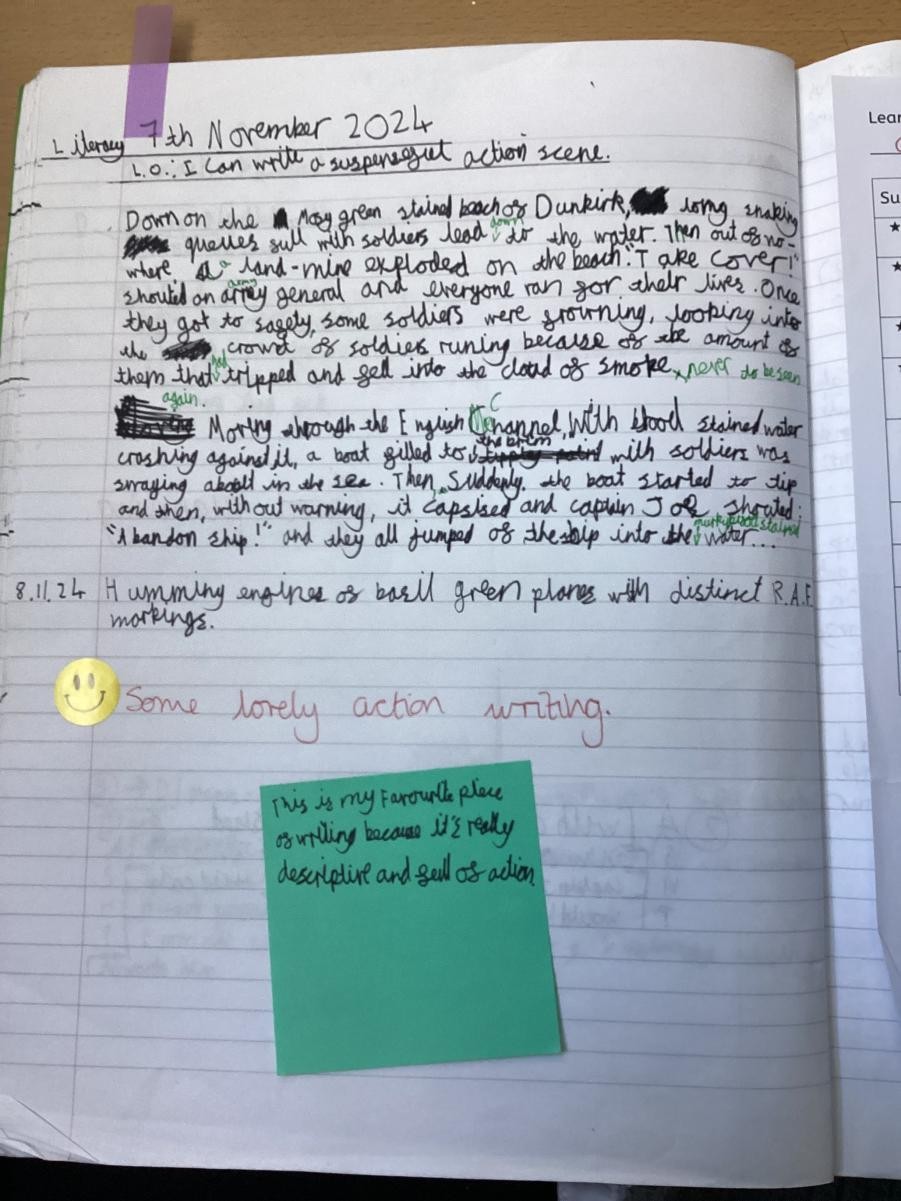 Literacy 7th November 2024
L.O.: I can write a suspensefull action scene.
Down on the Mosy green stained beach of Dunkirk, long snaking
queues full with soldiers lead down to the water. Then out of no-
where a land-mine exploded on the beach. "Take cover!"
shouted an army general and everyone ran for their lives. Once
they got to safety, some soldiers were frowning, looking into
the crowd of soldiers runing because of the amount of
them that had tripped and fell into the cloud of smoke never to be seen
again.
Moving through the English Channel, With blood stained water
crashing against it, a boat filled to the brim with soldiers was
swaying about in the sea. Then, Suddenly, the boat started to tip
and then, without warning, it capsised and captain Joe shouted:
"Abandon ship!" and they all jumped of the ship into the stained water...
8.11.24 Humming engines of basil green planes with distinct R.A.F
markings.
Some lovely action writing.
This is my Favourite piece
of writing because it's really
descriptive and full of action
Lear
Su